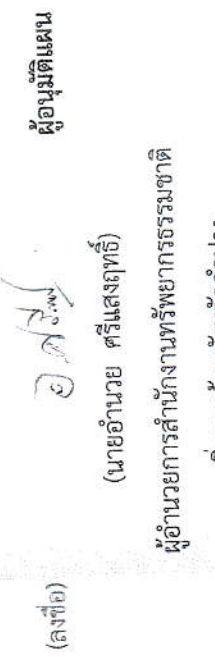 (ลงชื่อ) ผู้อนุมัติแผน
(นายอำนวย ศรีแสงฤทธิ์)
ผู้อำนวยการสำนักงานทรัพยากรธรรมชาติ